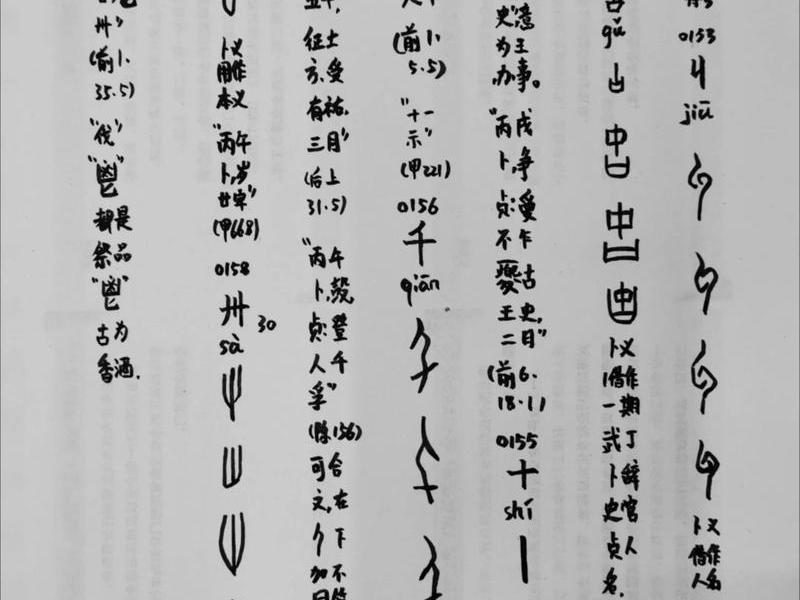 0153
丩
jiū
卜义借作人名
古
gǔ
卜义借作一期武丁卜辞史官贞人名.
王为办事。
"丙戌卜,争贞
王史,二月"
(前6.18.1)
0155
十
shí
(前1.5.5)
"十一示"
(甲221)
0156
千
qiān
征土方,受有祐,三月"
(后上31.5)
"丙午卜,㱿,贞:登人千
可合在
卜义用作本义
"丙午卜,岁廿牢"
(甲668)
0158
卅 30
sà
卅"
(前1.35.5)
"伐"
"鬯"
都是祭品
"鬯"
古为香酒.